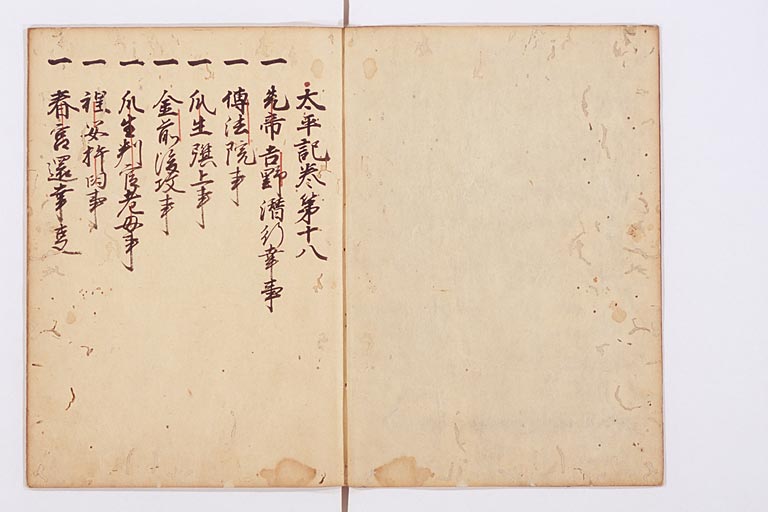 太平記巻第十八
一 先帝吉野潜行幸事
一 傳法院事
一 瓜生旗上事
一 金前後攻事
一 瓜生判官老母事
一 程嬰杵臼事
一 春宮還幸事